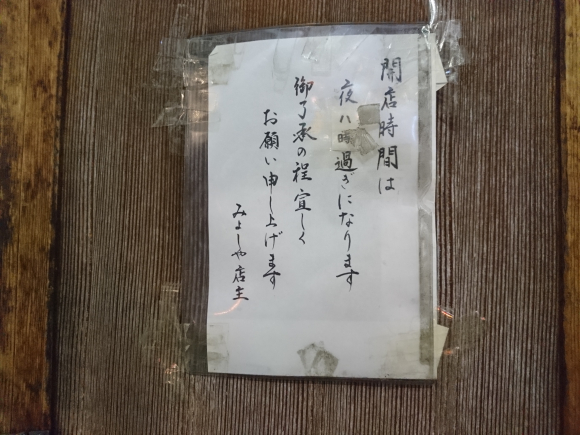 開店時間は
夜八時過ぎになります
御了承の程宜しく
お願い申し上げます
みよしや店主